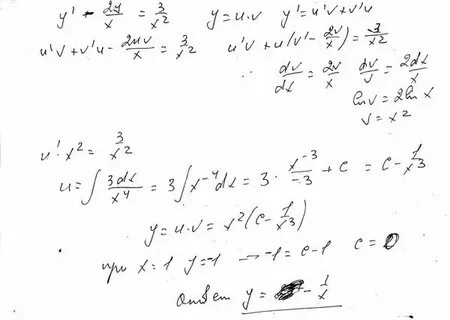 y' - 2y/x = 3/x² y = u·v y' = u'v + v'u
u'v + v'u - 2uv/x = 3/x² u'v + u(v' - 2v/x) = 3/x²
dv/dx = 2v/x dv/v = 2dx/x
ln v = 2 ln x
v = x²
u' x² = 3/x²
u = ∫ 3dx/x⁴ = 3∫x⁻⁴dx = 3 · x⁻³/-3 + c = c - 1/x³
y = u·v = x²(c - 1/x³)
при x = 1 y = -1 → -1 = c - 1 c = 0
Ответ y = - 1/x